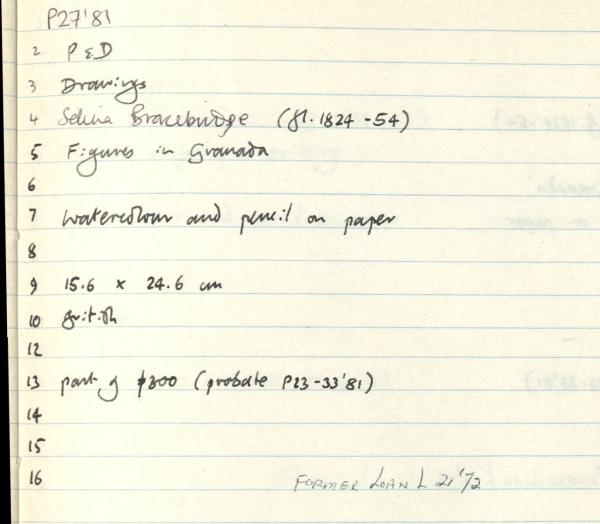 P27'81
2 P & D
3 Drawings
4 Selina Bracebridge (fl. 1824 - 54)
5 Figures in Granada
6
7 Watercolour and pencil on paper
8
9 15.6 x 24.6 cm
10 British
12
13 part of (probate P23-33'81)
14
15
16 FORMER LOAN L 21'72